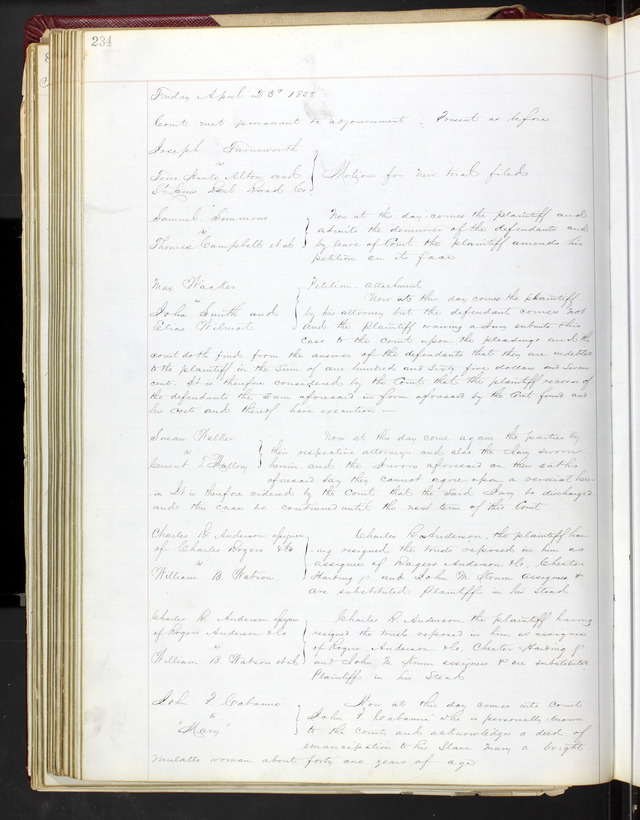 234
Friday April 1855
Court met pursuant to adjournment. Present as before
Joseph Farnsworth
vs
Terre Haute Alton and
St Louis Rail Road Co
Motion for new trial filed
Samuel Simmons
vs
Thomas Campbell et al
Now at this day comes the plaintiff and
admits the demurrer of the defendants and
by leave of Court the plaintiff amends his
petition on its face
Max Wacker
vs
John Smith and
Elias Wilmot
Petition - attachment
Now at this day comes the plaintiff
by his attorney but the defendant comes not
and the plaintiff waiving a Jury submits this
case to the court upon the pleadings and the
court doth find from the answer of the defendants that they are indebted
to the plaintiff in the sum of one hundred and Sixty five dollars and Seven
cents. It is therefore considered by the Court that the plaintiff recover of
the defendants the sum aforesaid in form aforesaid by the Court found and
his costs and thereof have execution —
Susan Walker
vs
Mallony
Now at this day come again the parties by
their respective attorneys and also the Jury sworn
herein and the Jurors aforesaid on their oaths
aforesaid say they cannot agree upon a verdict here-
in It is therefore ordered by the Court that the said Jury be discharged
and this case be continued until the next term of this Court
Charles R Anderson assignee
of Charles Rogers & Co
vs
William B Watson
Charles R Anderson, the plaintiff hav-
ing resigned the trusts reposed in him as
assignee of Rogers Anderson & Co, Chester
Harding Jr and John M Krum assignees &
are substituted Plaintiffs in his stead
Charles R. Anderson assignee
of Rogers Anderson & Co
vs
William B Watson et al
Charles R. Anderson, the plaintiff having
resigned the trusts reposed in him as assignee
of Rogers Anderson & Co. Chester Harding Jr
and John M Krum assignees & are substituted
Plaintiffs in his Stead
John F. Cabanne
to
"Mary"
Now at this day comes into court
John F. Cabanne who is personally known
to the Court, and acknowledges a deed of
emancipation to his Slave Mary a bright
mulatto woman about forty one years of age